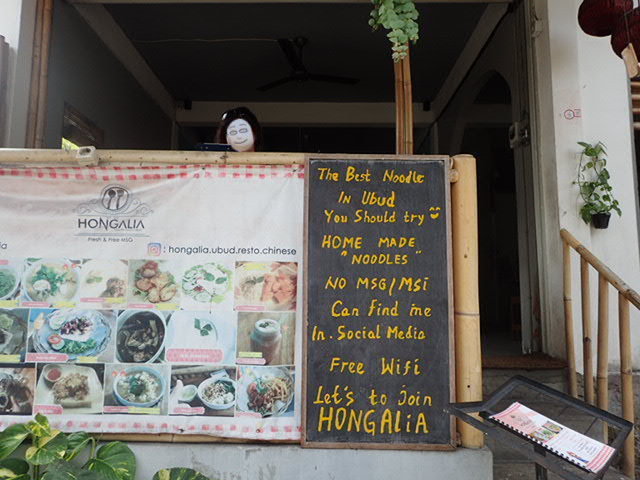 HONGALIA
Fresh & Free MSG
: hongalia.ubud.resto.chinese
The Best Noodle
In Ubud
You Should try
HOME MADE
"NOODLES"
NO MSG/MSi
Can find me
In. Social Media
Free Wifi
Let's to Join
HONGALiA